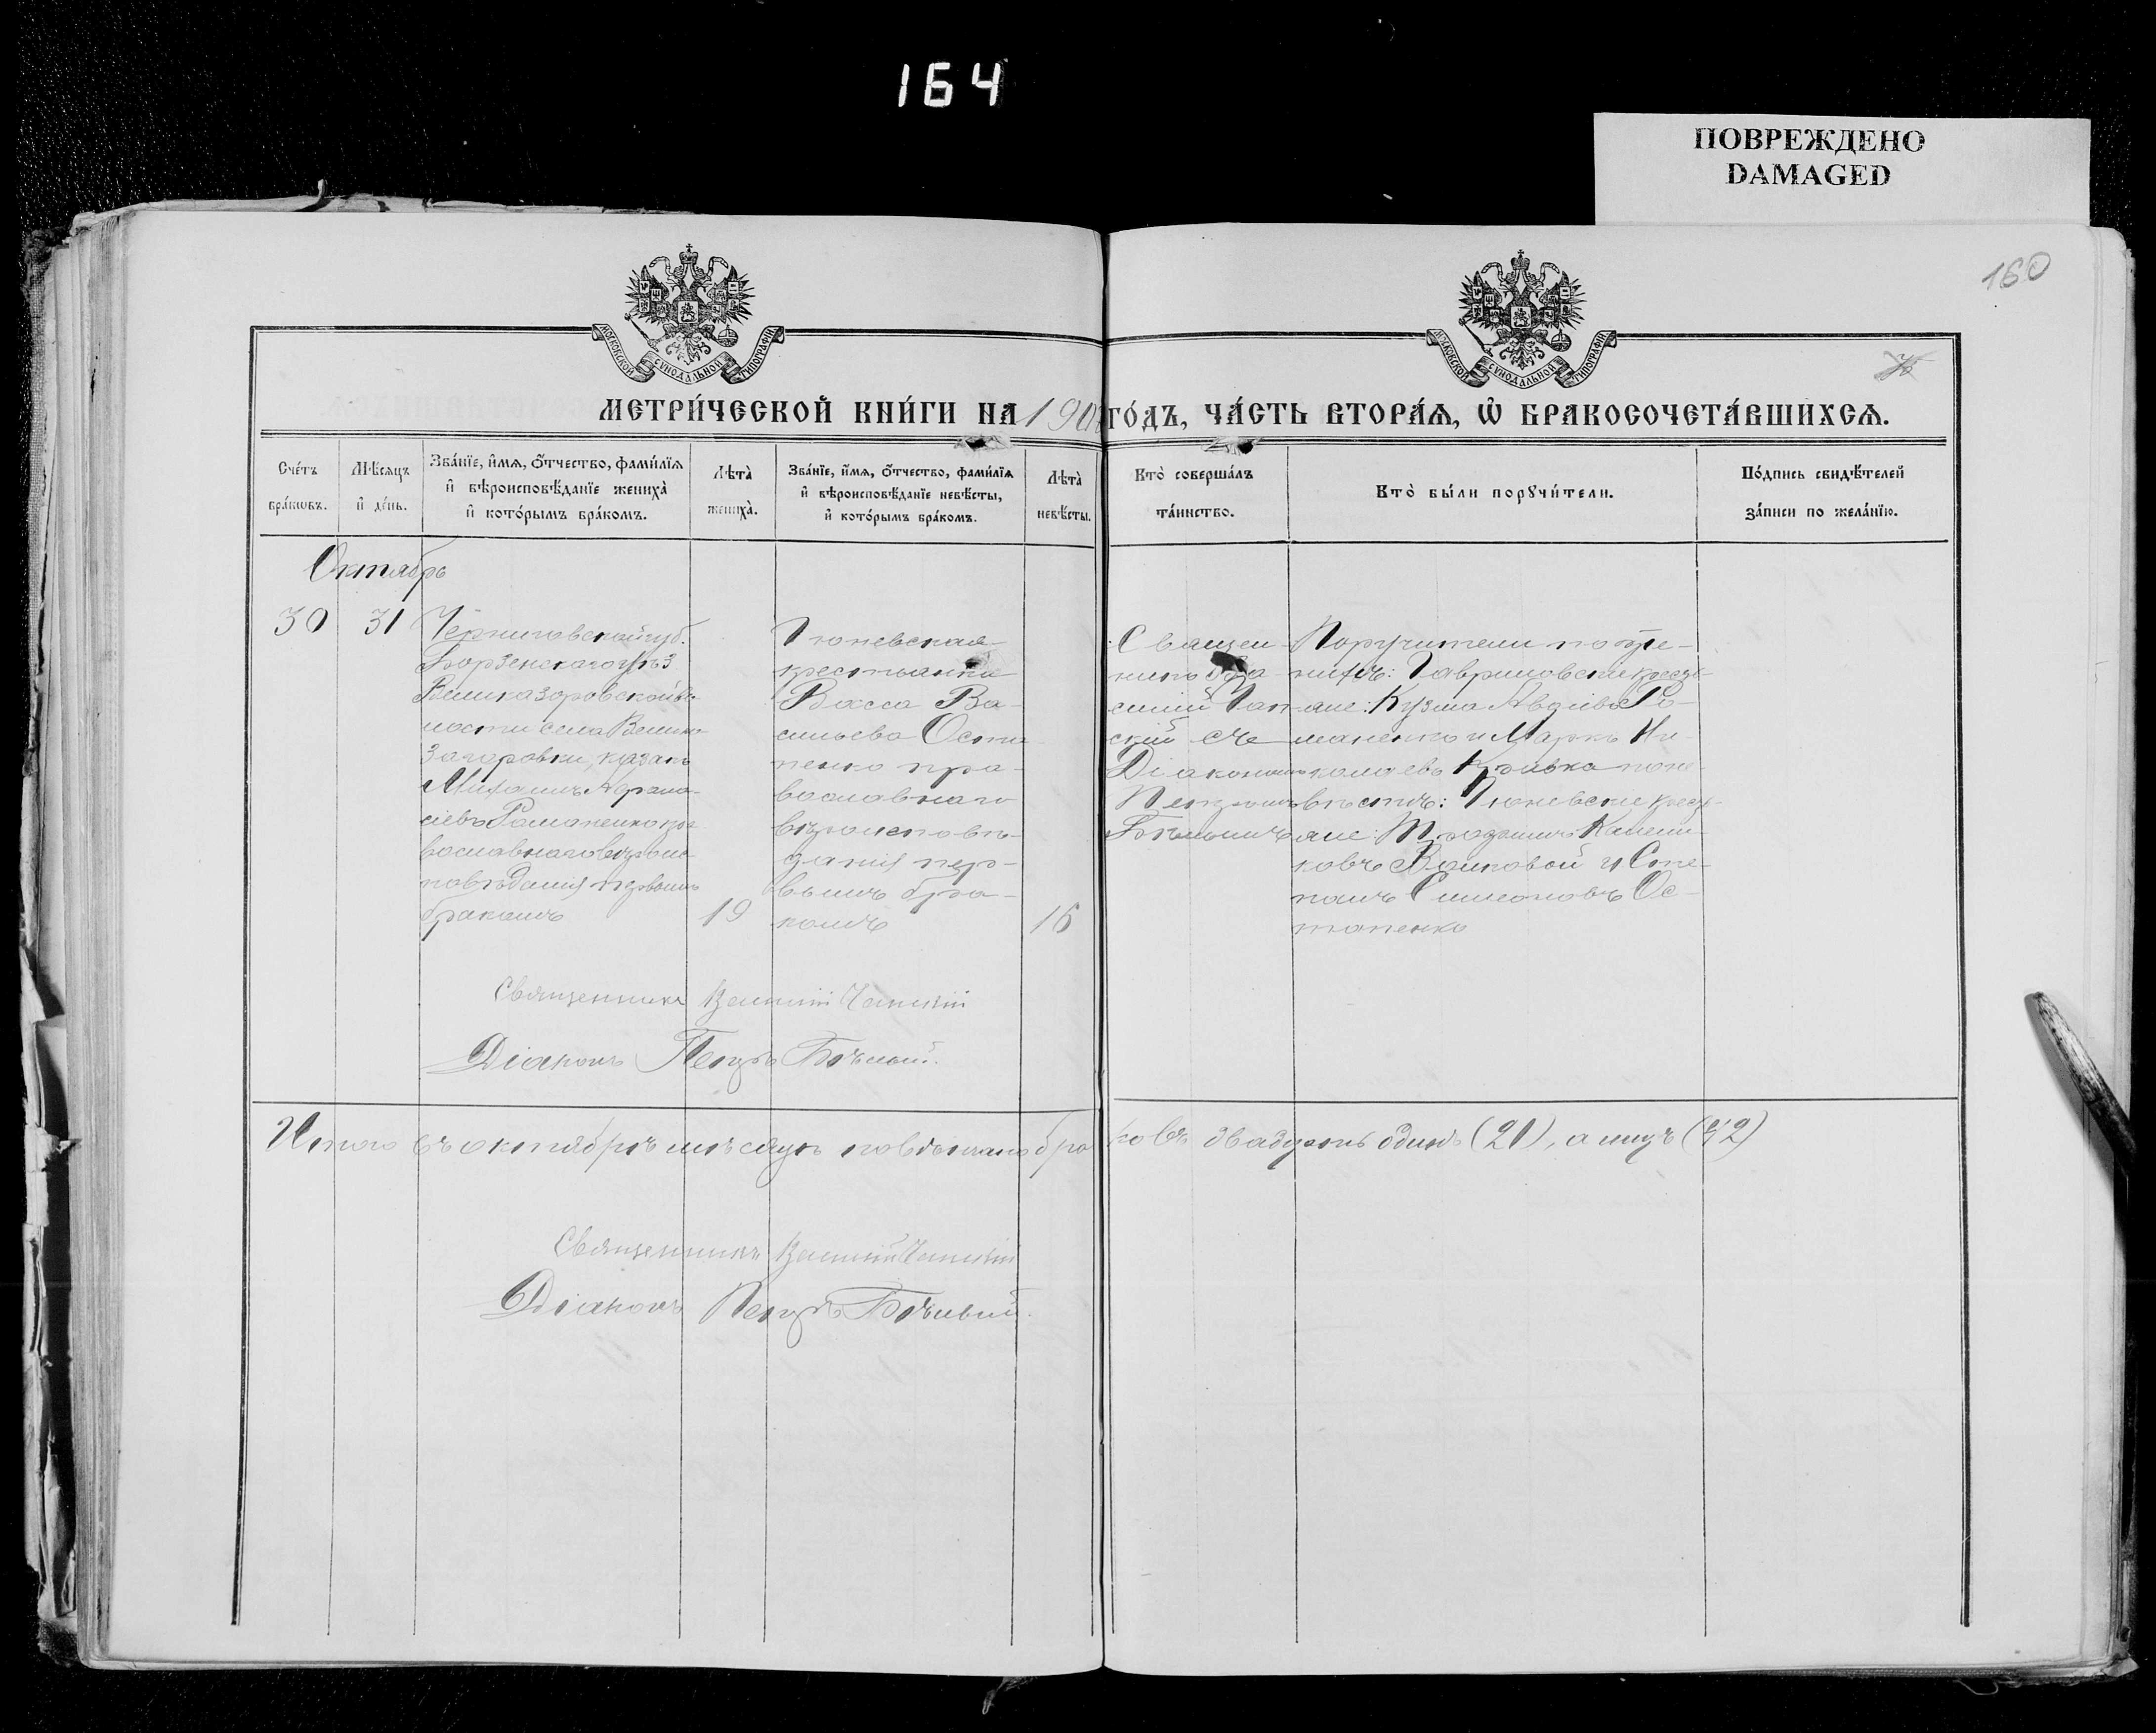 164
ПОВРЕЖДЕНО
DAMAGED
160
МОСКОВСКОЙ СѴНОДАЛЬНОЙ ТИПОГРАФІИ
МОСКОВСКОЙ СѴНОДАЛЬНОЙ ТИПОГРАФІИ
МЕТРИ́ЧЕСКОЙ КНИ́ГИ НА 190 ГО́ДЪ, ЧА́СТЬ ВТОРА́Я, Ѡ БРАКОСОЧЕТА́ВШИХСЯ.
Сче́тъ
бра́кωвъ.
Мѣ́сяцъ
и҆ де́нь.
Зва́нїе, и҆́мѧ, ѻ҆́тчество, фами́лїѧ
и҆ вѣроисповѣ́данїе жениха̀
и҆ кото́рымъ бра́комъ.
Лѣта̀
жениха̀.
Зва́нїе, и҆́мѧ, ѻ҆́тчество, фами́лїѧ
и҆ вѣроисповѣ́данїе невѣ́сты,
и҆ кото́рымъ бра́комъ.
Лѣта̀
невѣ́сты.
Кто̀ соверша́лъ
та́инство.
Кто̀ бы́ли порꙋчи́тели.
По́дпись свидѣ́телей
за́писи по жела́нїю.
Октябрь
30
31
Черниговской губ.
Борзенскаго уѣз
Великазоровской во-
лости села Велико
Загоровки, казакъ
Михаилъ
сіевъ Романенко пра
вославнаго вѣроис-
повѣданія первымъ
бракомъ
19
крестьянка
Васса Ва-
сильева Оста
пенко пра-
вославнаго
вѣроисповѣ-
данія пер-
вымъ бра-
комъ
16
Священ-
никъ Ва-
силій Чап-
скій съ
Діакономъ
Петромъ
Бѣлымъ
Поручители по же-
нихѣ: Гавриловскіе кресть-
яне: Кузма Авдіевъ Ро-
маненко и Маркъ Ни-
колаевъ Кривка по не-
вѣстѣ: кресть-
яне:
ковъ Волковой и Сте-
панъ Симеоновъ Ос-
тапенко
Священникъ Василій
Діаконъ Петръ Бѣлый.
Итого въ октябрѣ мѣсяцѣ повѣнчано бра ковъ двадцать одинъ (21), а лицъ (42)
Священникъ Василій
Діаконъ Петръ Бѣлый.